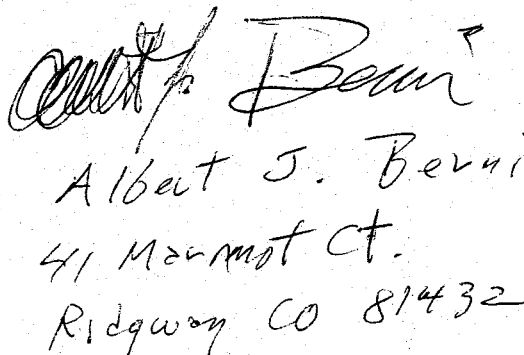 Albert J. Berni
Albert J. Berni
41 Marmot Ct.
Ridgway CO 81432